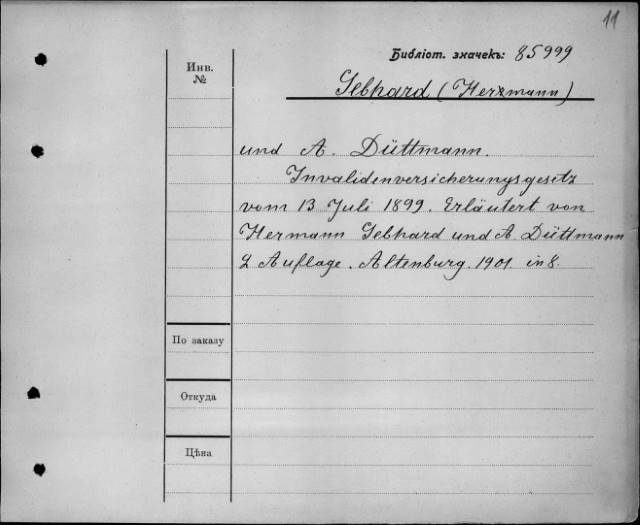 11
Библіот. значекъ: 85999
Инв.
№
Gebhard (Herzmann)
und A. Düttmann.
Invalidenversicherungsgesetz
vom 13 Juli 1899. Erläutert von
Hermann Gebhard und A. Düttmann
2 Auflage. Altenburg. 1901. in 8.
По заказу
Откуда
Цѣна